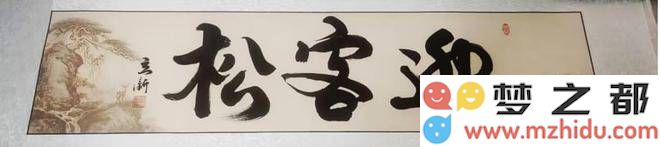 迎客松
立新
梦之都
www.mzhidu.com